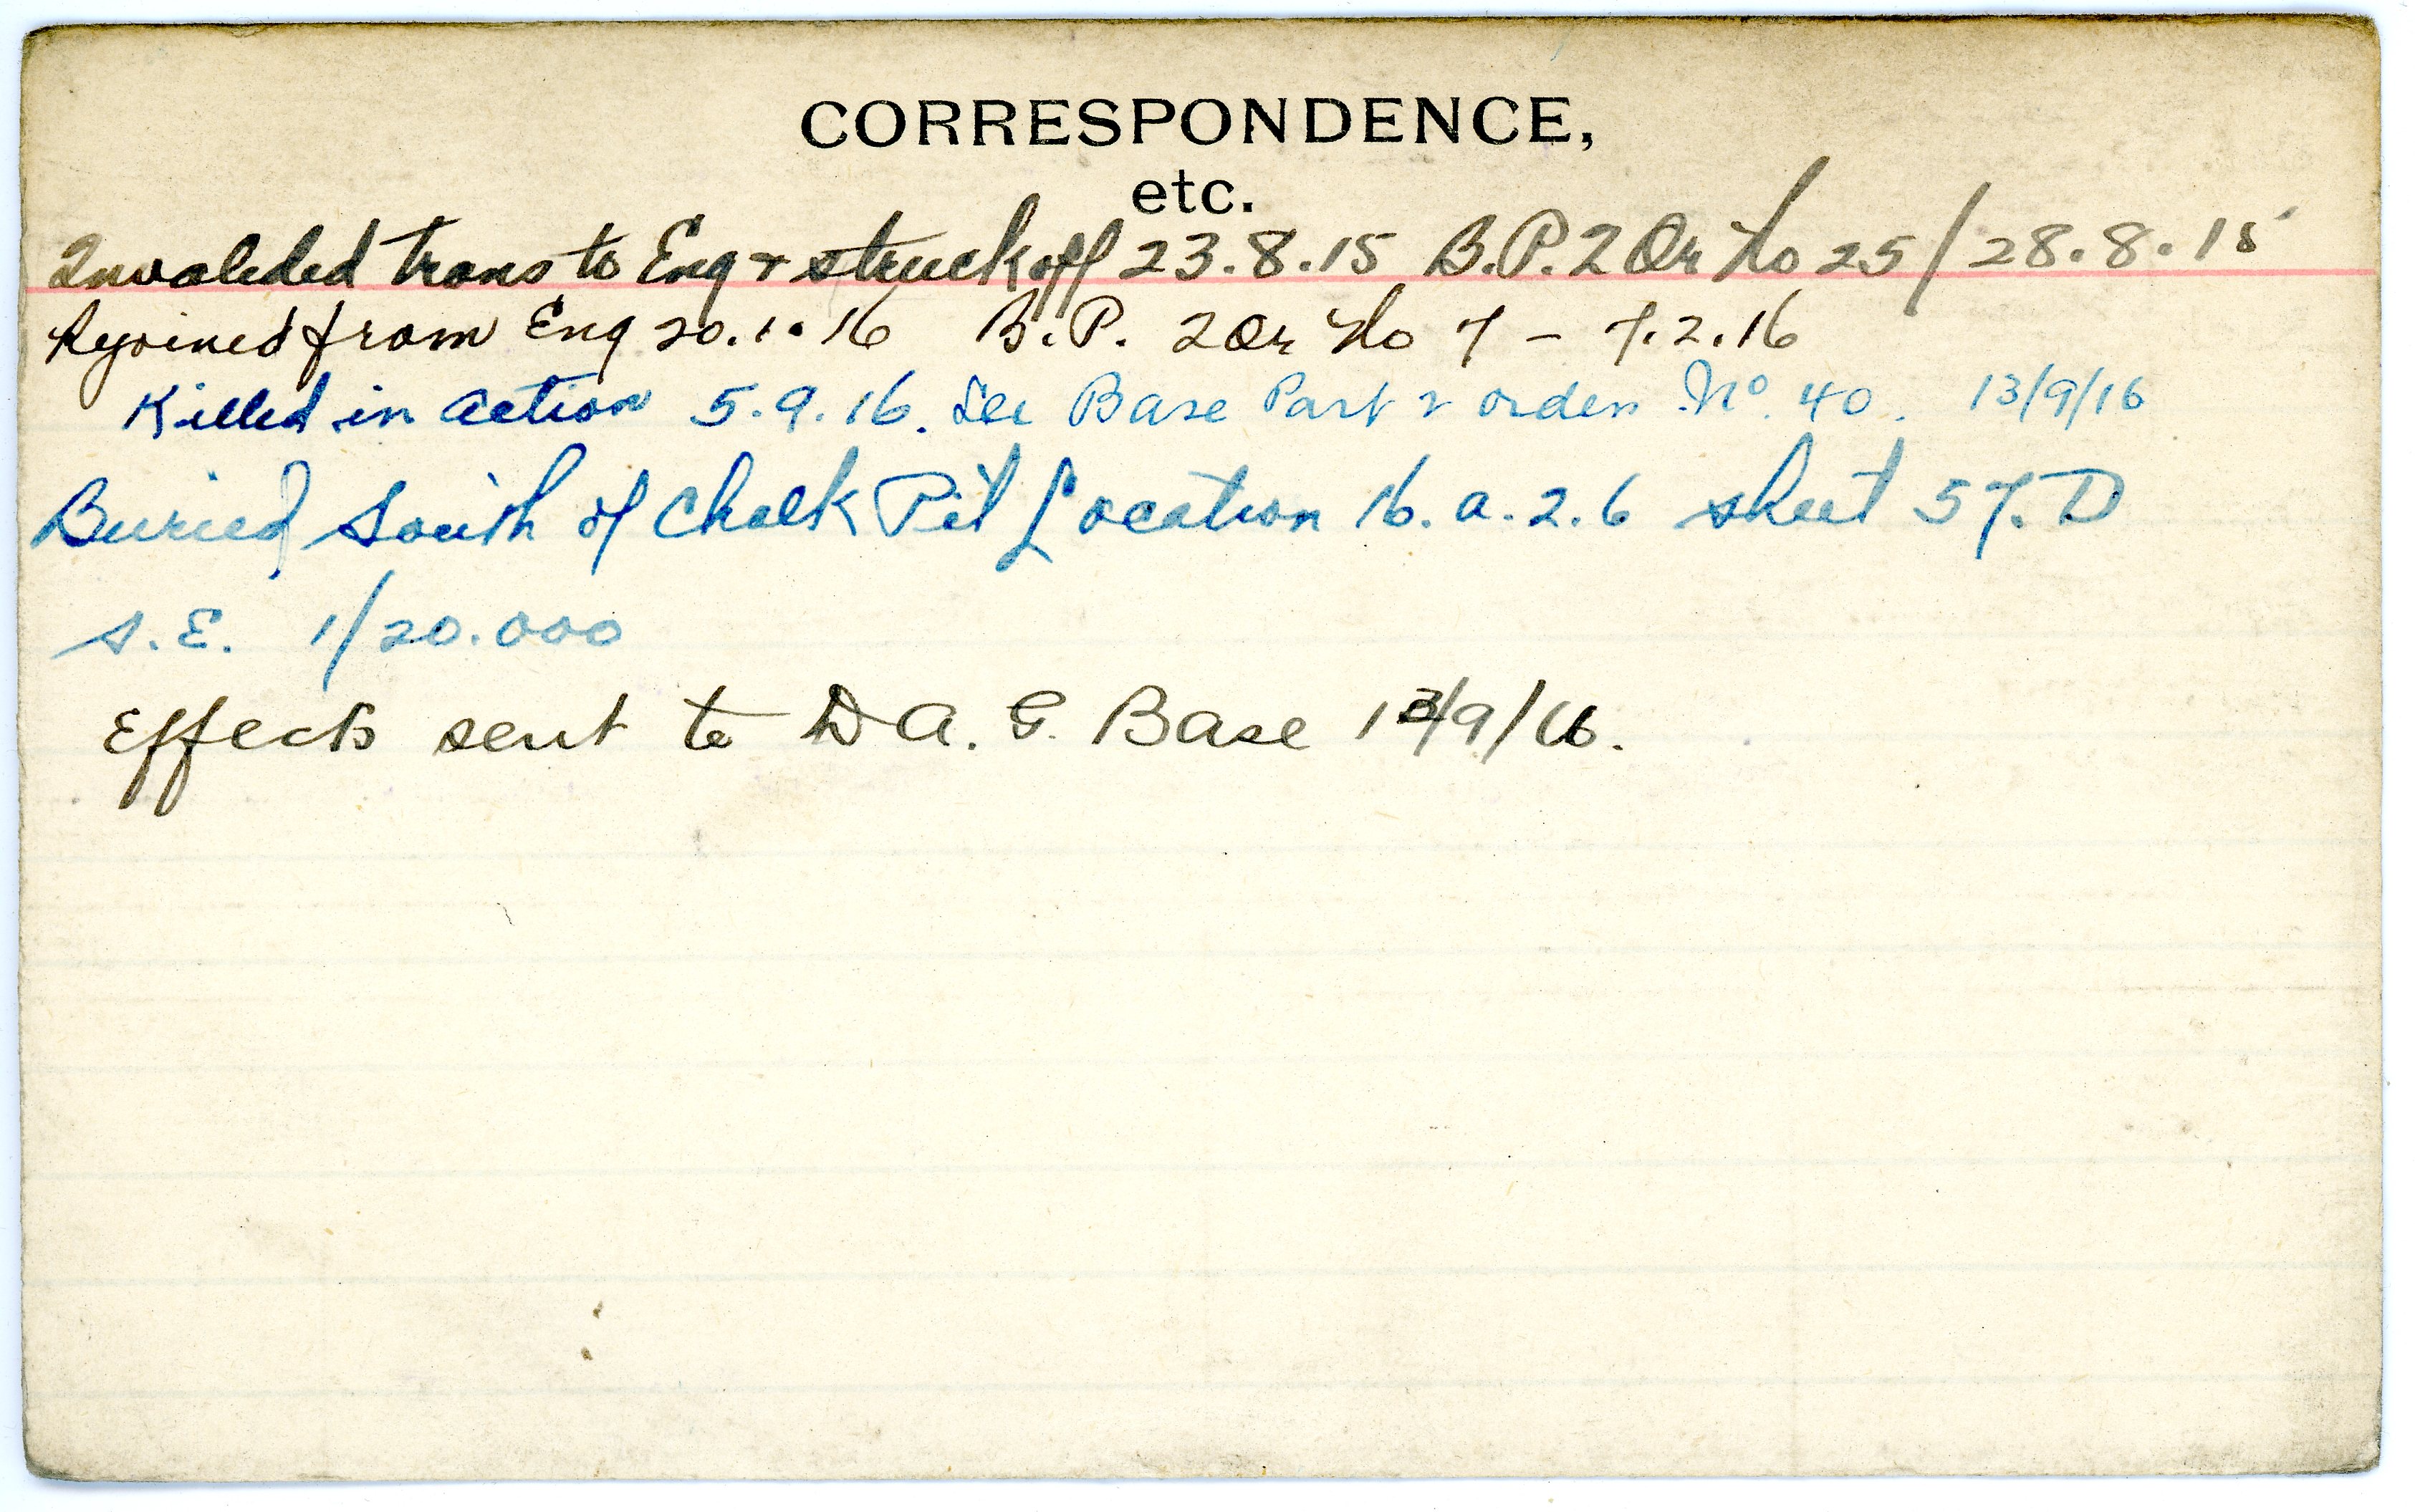 CORRESPONDENCE,
etc.
Invalided trans to Eng & struck off 23.8.15 B.P. 2 Or No 25/28.8.15
Rejoined from Eng 20.1.16 B.P. 2 Or No 7 - 7.2.16
Killed in action 5.9.16. See Base Part 2 orders No. 40. 13/9/16
Buried South of Chalk Pit Location 16.a.2.6 sheet 57.D
S.E. 1/20.000
Effects sent to D A. G. Base 13/9/16.